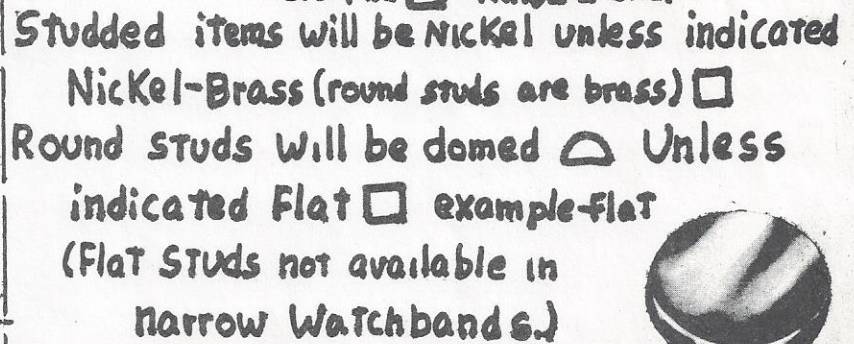 Studded items will be Nickel unless indicated
Nickel-Brass (round studs are brass)
Round studs will be domed Unless
indicated Flat example-flat
(Flat Studs not available in
narrow Watchbands.)